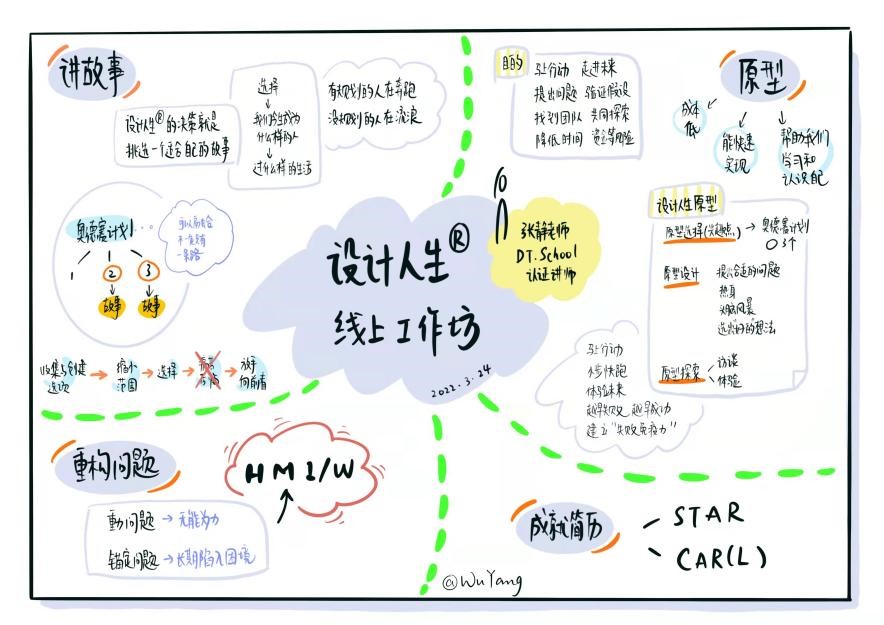 讲故事
设计人生®的决策就是
挑选一个适合自己的故事
选择
我们会成为
什么样的人
过什么样的生活
有规划的人在奔跑
没规划的人在流浪
奥德赛计划
1
2
3
故事
故事
一条路
收集与创建
选项
缩小
范围
选择
放手
向前看
目的
马上行动 走进未来
提出问题 验证假设
找到团队 共同探索
降低时间 资金等风险
原型
成本
低
能快速
实现
帮助我们
学习和
认识自己
设计人生®
线上工作坊
2022.3.24
张静老师
DT.School
认证讲师
设计人生原型
原型选择(兴趣点)
奥德赛计划
3个
原型设计
提出合适的问题
热身
头脑风暴
选出好的想法
原型探索
访谈
体验
马上行动
小步快跑
体验未来
越早失败 越早成功
建立“失败免疫力”
重构问题
HMI/W
重力问题
无能为力
锚定问题
长期陷入困境
成就简历
STAR
CAR(L)
@WuYang